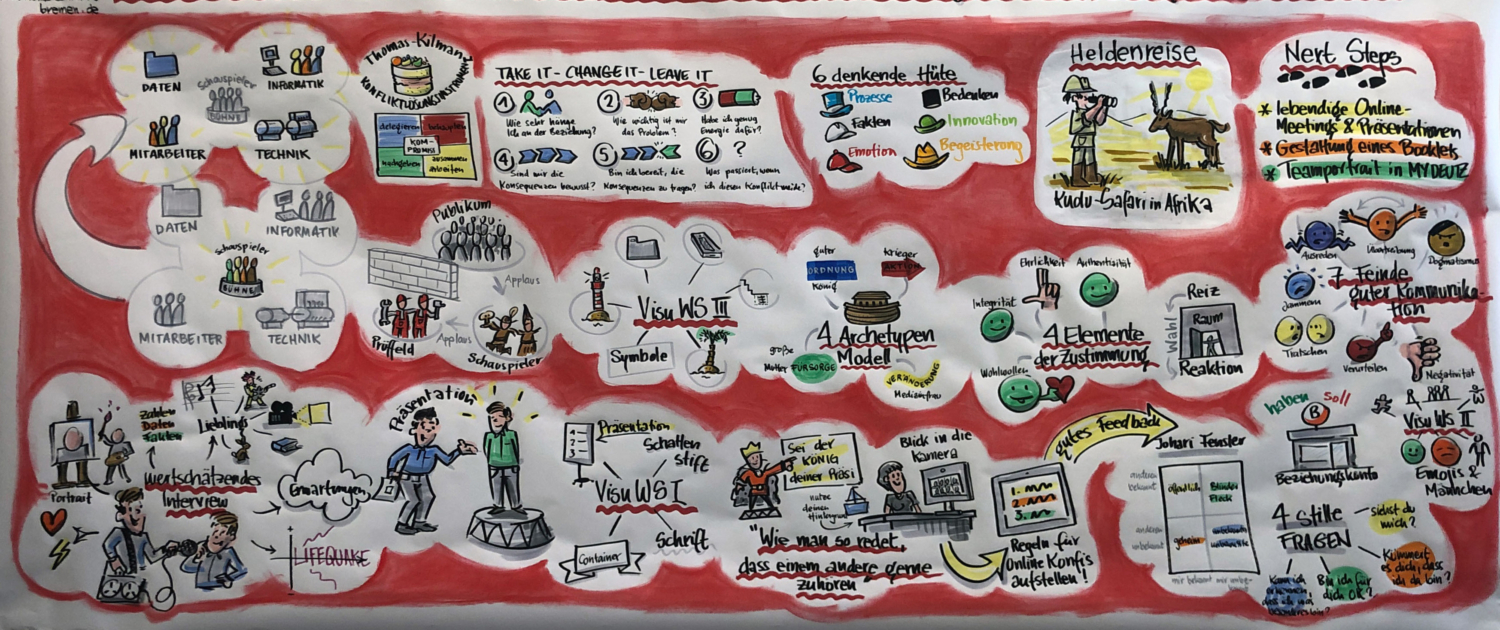 bremen.de
DATEN
Schauspieler
BÜHNE
INFORMATIK
MITARBEITER
TECHNIK
Thomas-Kilmann
KONFLIKTLÖSUNGSMECHANISMEN
delegieren
behaupten
KOM-
PROMISS
nachgeben
zusammen
arbeiten
TAKE IT - CHANGE IT - LEAVE IT
1
Wie sehr hänge
ich an der Beziehung?
2
Wie wichtig ist mir
das Problem?
3
Habe ich genug
Energie dafür?
4
Sind mir die
Konsequenzen bewusst?
5
Bin ich bereit, die
Konsequenzen zu tragen?
6
?
Was passiert, wenn
ich diesen Konflikt meide?
6 denkende Hüte
Prozesse
Bedenken
Fakten
Innovation
Emotion
Begeisterung
Heldenreise
Kudu-Safari in Afrika
Next Steps
* lebendige Online-
Meetings & Präsentationen
* Gestaltung eines Booklets
* Teamportrait in MY DEUTZ
DATEN
INFORMATIK
Schauspieler
BÜHNE
MITARBEITER
TECHNIK
Publikum
Applaus
Prüffeld
Applaus
Schauspieler
Visu WS III
Symbole
guter
ORDNUNG
König
Krieger
AKTION
4 Archetypen
Modell
große
Mutter
FÜRSORGE
VERÄNDERUNG
Medizinfrau
Ehrlichkeit
Authentizität
Integrität
4 Elemente
der Zustimmung
Wohlwollen
Reiz
Wahl
Raum
Reaktion
Ausreden
Übertreibung
Dogmatismus
7 Feinde
guter Kommunika-
tion
Jammern
Tratschen
Verurteilen
Negativität
Portrait
Zahlen
Daten
Fakten
Lieblings
wertschätzendes
Interview
Erwartungen
LIFEQUAKE
Präsentation
Präsentation
1
2
3
Schatten
stift
Visu WS I
Container
Schrift
Sei der
KÖNIG
deiner Präsi
nutze
deinen
Hintergrund
Blick in die
Kamera
"Wie man so redet,
dass einem andere gerne
zuhören"
1.
2.
3.
Regeln für
Online Konfis
aufstellen!
gutes Feedback
Johari Fenster
anderen
bekannt
öffentlich
Blinder
Fleck
anderen
unbekannt
geheim
unbekannt
mir bekannt
haben
soll
B
Beziehungskonto
Visu WS II
Emojis &
Männchen
4 stille
FRAGEN
siehst du
mich?
Kümmert
es dich, dass
ich da bin?
Bin ich für
dich OK?
Kann ich